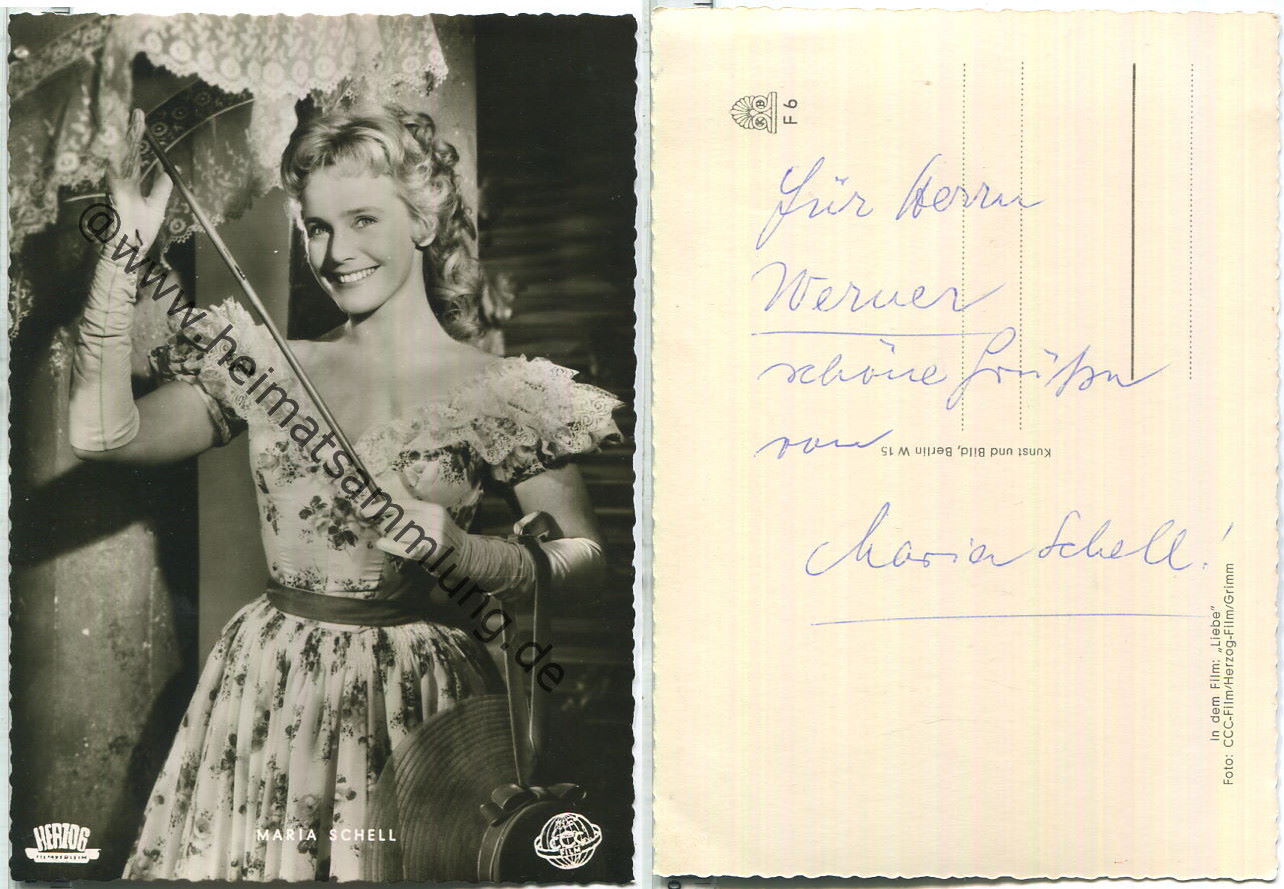 @www.heimatsammlung.de
MARIA SCHELL
HERZOG
FILM
F 6
Für Herrn
Werner
schöne Grüße
von
Kunst und Bild, Berlin W 15
Maria Schell!
In dem Film: „Liebe"
Foto: CCC-Film/Herzog-Film/Grimm